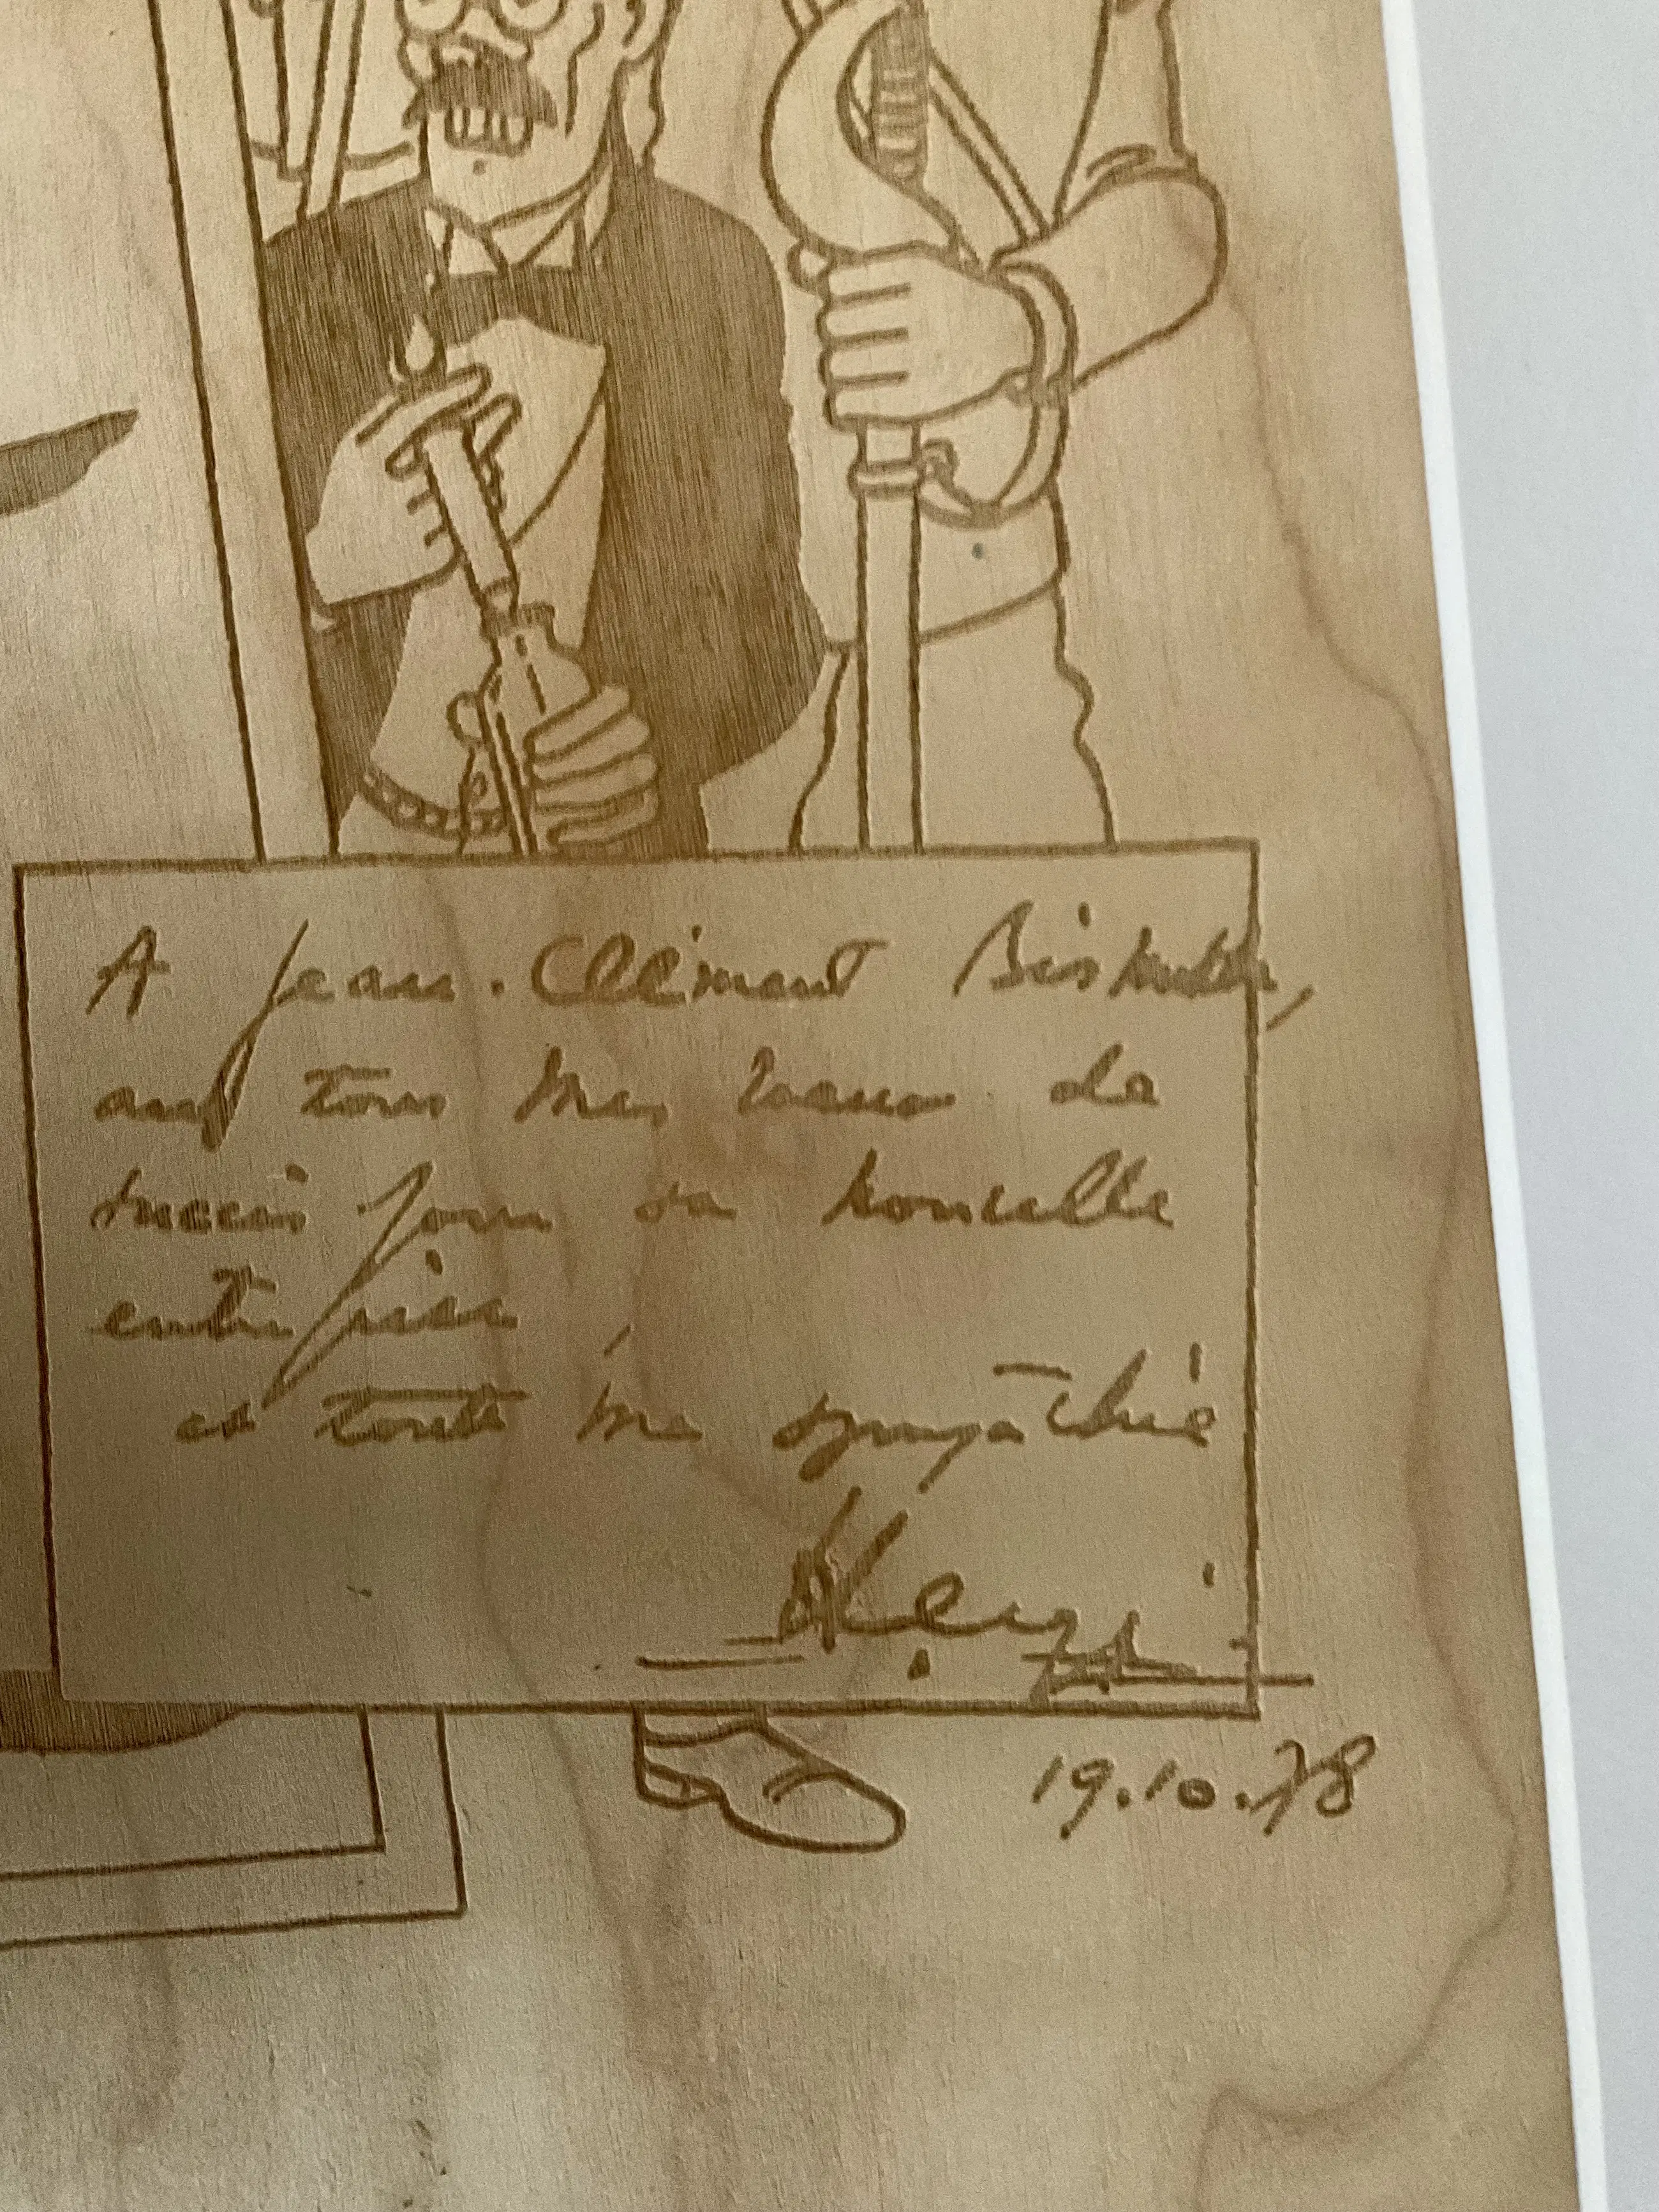 A Jean-Clément
avec tous mes vœux de
succès pour sa nouvelle
entreprise
et toute ma sympathie
Hergé
19.10.78